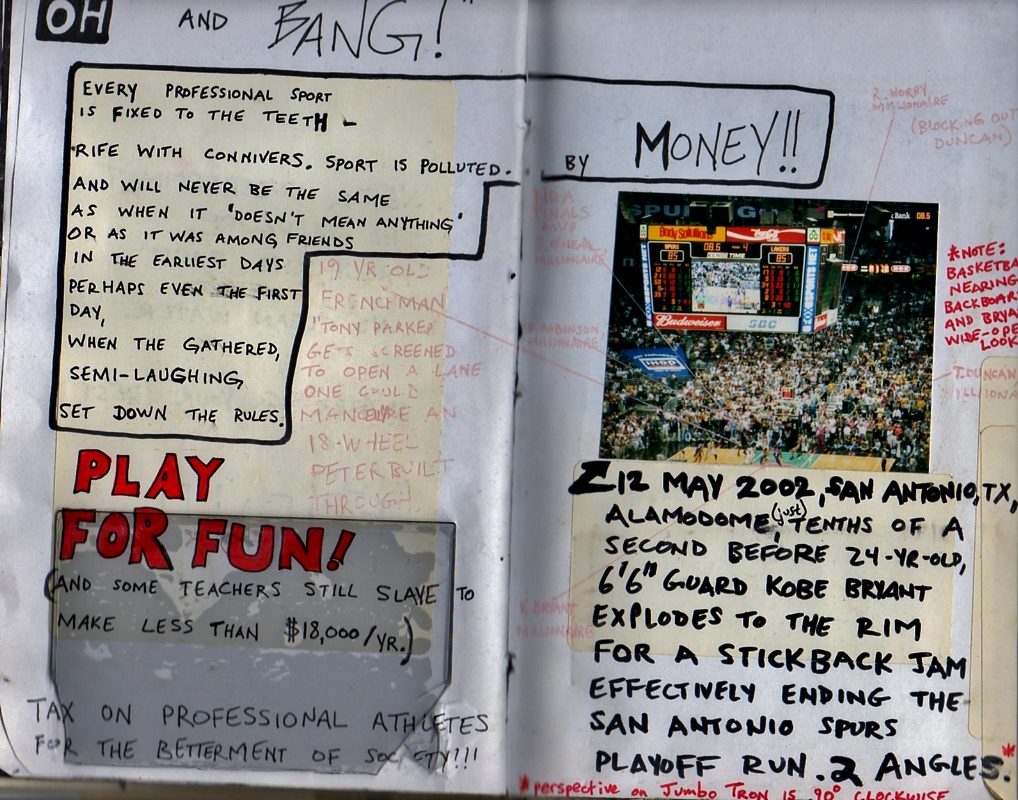 OH AND BANG!
EVERY PROFESSIONAL SPORT
IS FIXED TO THE TEETH -
RIFE WITH CONNIVERS. SPORT IS POLLUTED. BY MONEY!!
AND WILL NEVER BE THE SAME
AS WHEN IT "DOESN'T MEAN ANYTHING"
OR AS IT WAS AMONG FRIENDS
IN THE EARLIEST DAYS
PERHAPS EVEN THE FIRST
DAY,
WHEN THE GATHERED,
SEMI-LAUGHING
SET DOWN THE RULES.
19 YR OLD
FRENCHMAN
"TONY PARKER
GETS SCREENED
TO OPEN A LANE
ONE COULD
MANEUVRE AN
18-WHEEL
PETERBUILT
THROUGH.
PLAY
FOR FUN!
(AND SOME TEACHERS STILL SLAVE TO
MAKE LESS THAN $18,000/YR.)
TAX ON PROFESSIONAL ATHLETES
FOR THE BETTERMENT OF SOCIETY!!!
R. HORRY
MILLIONAIRE
(BLOCKING OUT
DUNCAN)
NBA
FINALS
MVP
S. O'NEAL
MILLIONAIRE
ROBINSON
MILLIONAIRE
Body Solutions
Coca-Cola
Bank 08.5
SPURS 08.5 4 LAKERS
85 TIME 85
Budweiser SBC
*NOTE:
BASKETBA
NEARING
BACKBOAR
AND BRYA
WIDE-OPE
LOOK
T. DUNCAN
K. BRYANT
MILLIONAIRE
12 MAY 2002, SAN ANTONIO, TX,
ALAMODOME, (just) TENTHS OF A
SECOND BEFORE 24-YR-OLD,
6'6" GUARD KOBE BRYANT
EXPLODES TO THE RIM
FOR A STICKBACK JAM
EFFECTIVELY ENDING THE
SAN ANTONIO SPURS
PLAYOFF RUN. 2 ANGLES.*
*perspective on JUMBO TRON IS 90° CLOCKWISE